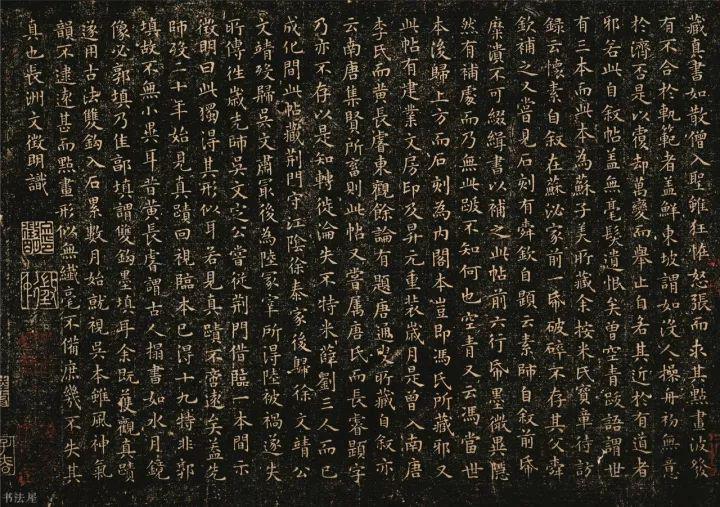 藏真書如散僧入聖雖狂怪怒張而求其點畫波發
有不合於軌範者蓋鮮東坡謂如沒人操舟初無意
於濟否是以覆却萬變而舉止自若其近於有道者
邪若此自敘帖蓋無毫髮遺恨矣曾空青跋語謂世
有三本而此本為蘇子美所藏余按米氏寶章待訪
錄云懷素自叙在蘇泌家前一㡧破碎不存其父舜
欽補之又嘗見石刻有舜欽自題云素師自敘前㡧
糜潰不可綴緝書以補之此帖前六行㡧墨微異隱
然有補處而乃無此跋不知何也空青又云馮當世
本後歸上方而石刻為內閣本豈即馮氏所藏邪又
此帖有建業文房印及昇元重裝歲月是曾入南唐
李氏而黃長睿東觀餘論有題唐通叟所藏自敘亦
云南唐集賢所畜則此帖又嘗屬唐氏而長睿題字
乃亦不存以是知轉徙淪失不特米薛劉三人而已
成化間此帖藏荊門守江陰徐泰家後歸徐文靖公
文靖歿歸吳文肅最後為陸冢宰所得陸被禍遂失
所傳往歲先師吳文定公嘗從荊門借臨一本間示
徵明曰此獨得其形似耳若見真蹟不啻遠矣蓋先
師歿二十年始見真蹟回視臨本已得十九特非郭
填故不無小異耳昔黃長睿謂古人搨書如水月鏡
像必郭填乃佳郭填謂雙鉤墨填耳余既獲觀真蹟
遂用古法雙鈎入石累數月始就視吳本雖風神氣
韻不逮遠甚而點畫形似無纖毫不備庶幾不失其
真也長洲文徵明識
书法屋